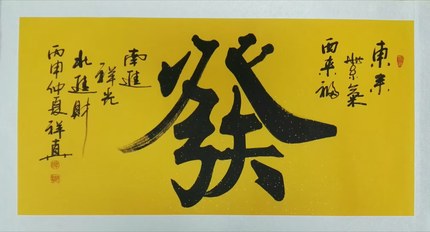 東来
紫氣
西来福
發
南進
祥光
北進財
丙申仲夏祥真